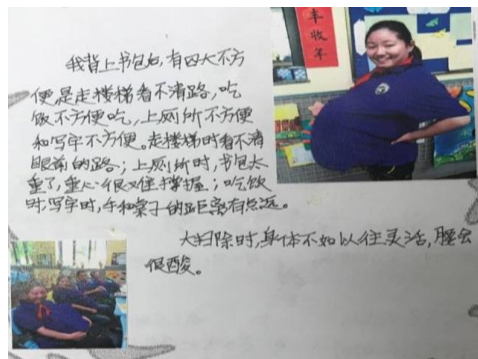 丰收年
我背上书包后,有四大不方
便是走楼梯看不清路,吃
饭不方便吃,上厕所不方便
和写字不方便。走楼梯时看不清
眼前的路;上厕所时,书包太
重了,重心很难掌握;吃饮
时,写字时,手和桌子的距离有点远。
大扫除时,身体不如以往灵活,腰会
很酸。